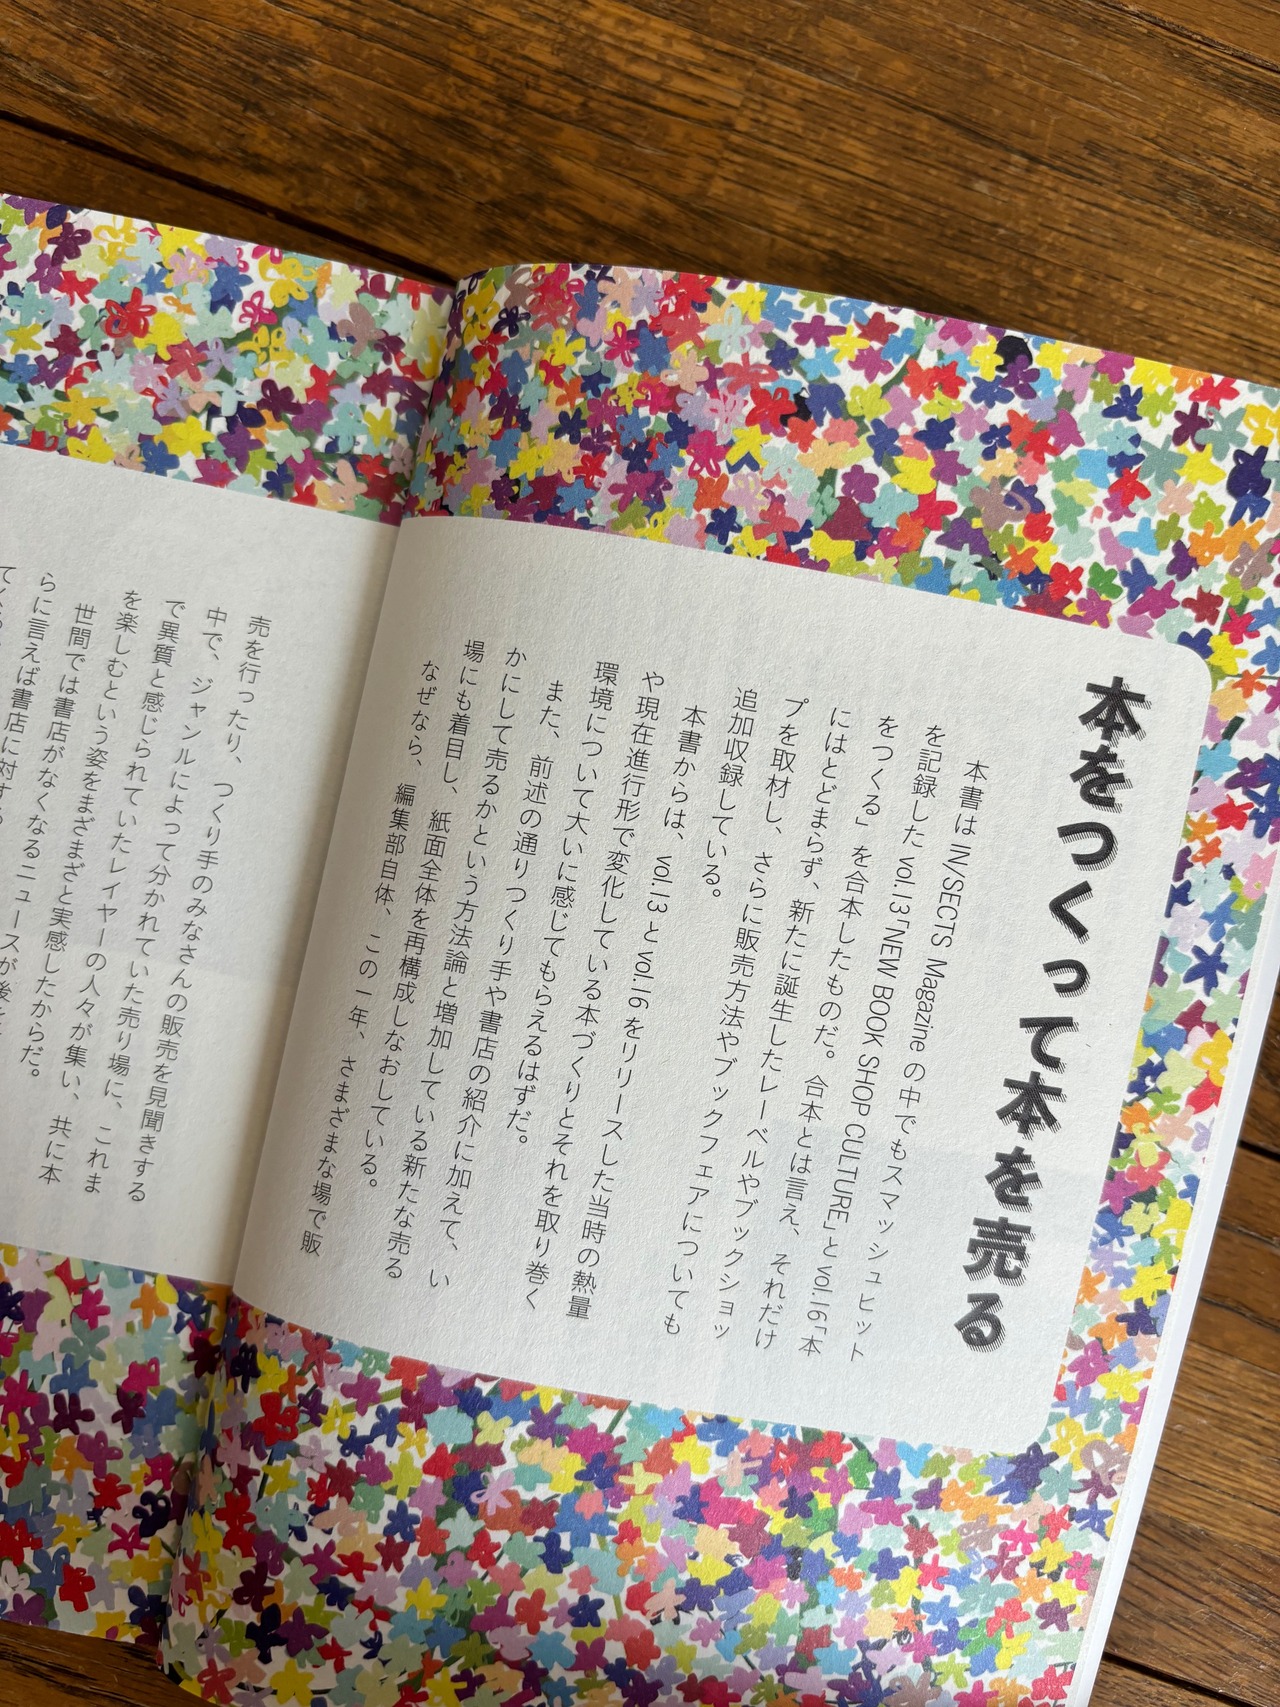 本をつくって本を売る
本書は IN/SECTS Magazine の中でもスマッシュヒット
を記録した vol.13「NEW BOOK SHOP CULTURE」と vol.16「本
をつくる」を合本したものだ。合本とは言え、それだけ
にはとどまらず、新たに誕生したレーベルやブックショッ
プを取材し、さらに販売方法やブックフェアについても
追加収録している。
本書からは、vol.13 と vol.16 をリリースした当時の熱量
や現在進行形で変化している本づくりとそれを取り巻く
環境について大いに感じてもらえるはずだ。
また、前述の通りつくり手や書店の紹介に加えて、い
かにして売るかという方法論と増加している新たな売る
場にも着目し、紙面全体を再構成しなおしている。
なぜなら、編集部自体、この一年、さまざまな場で販
売を行ったり、つくり手のみなさんの販売を見聞きする
中で、ジャンルによって分かれていた売り場に、これま
で異質と感じられていたレイヤーの人々が集い、共に本
を楽しむという姿をまざまざと実感したからだ。
世間では書店がなくなるニュースが後を
らに言えば書店に対する